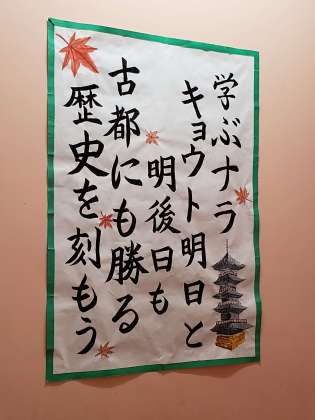 学ぶナラ
キョウト明日と
明後日も
古都にも勝る
歴史を刻もう